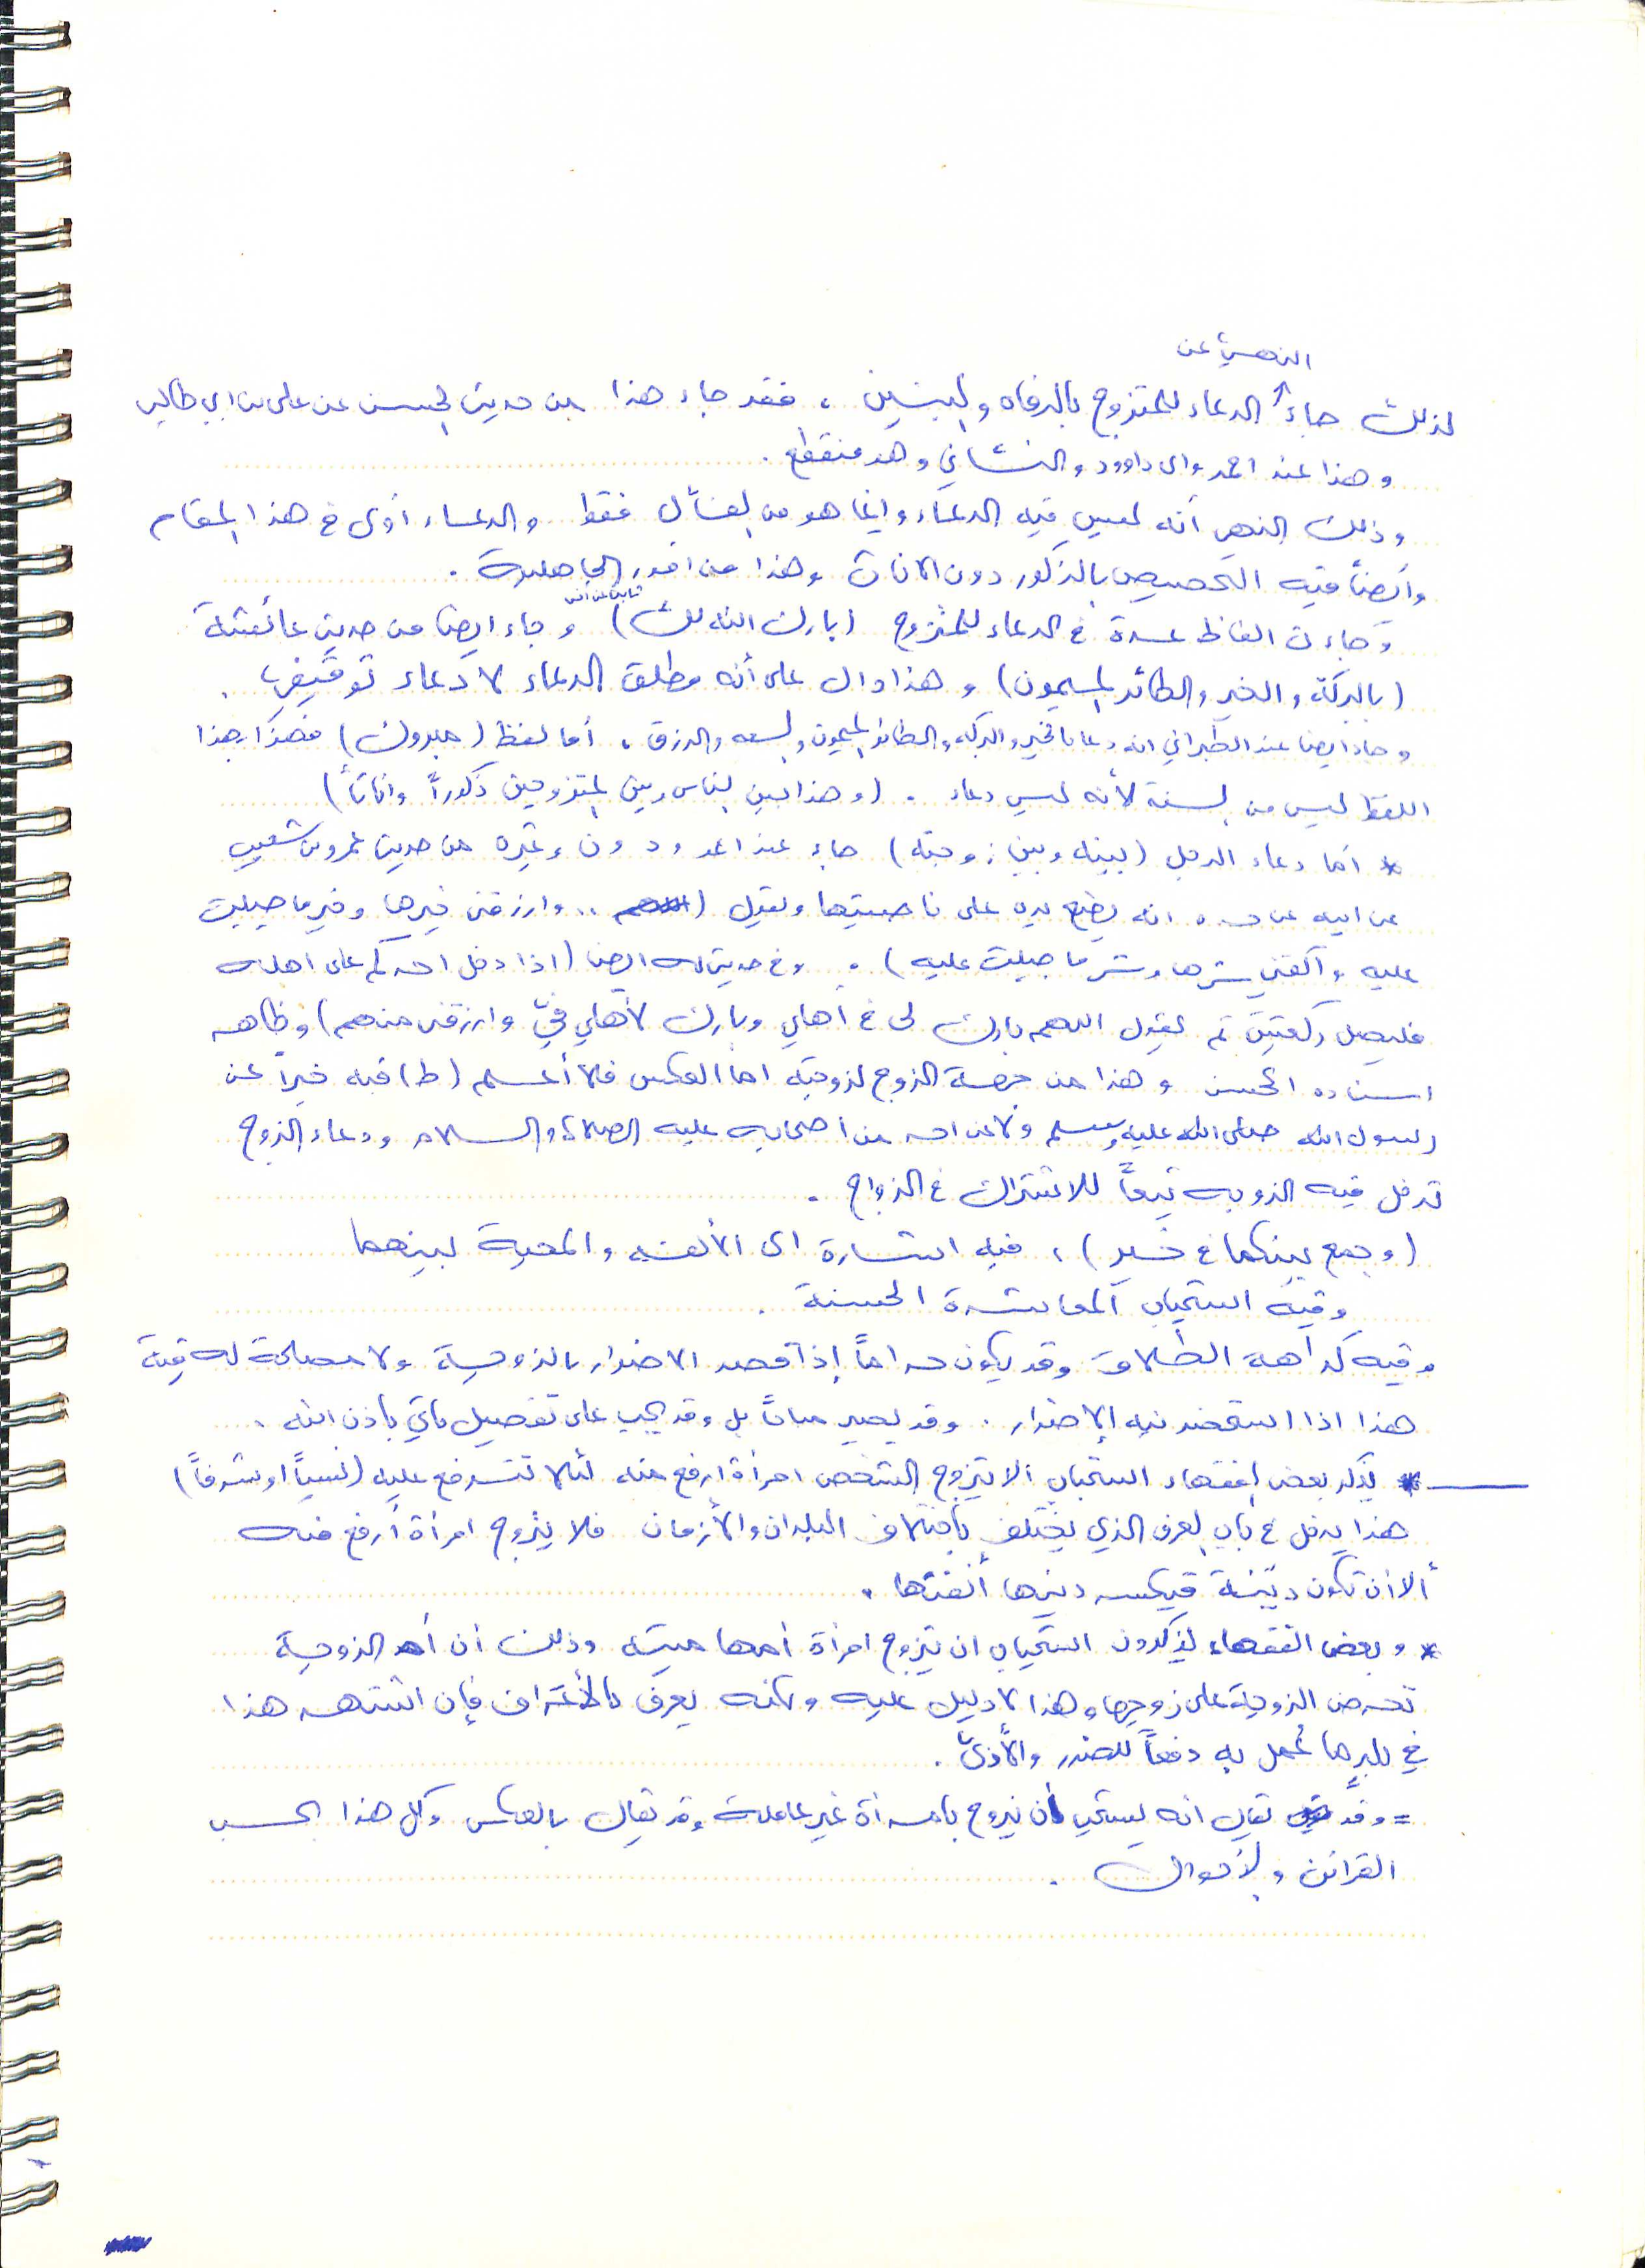 النهي عن
لذلك جاء الدعاء للمتزوج بالرفاه والبنين ، فقد جاء هذا من حديث الحسن عن علي بن ابي طالب
وهذا عند احمد وابي داوود والنسائي وهو منقطع .
وذلك النهي أنه ليس فيه الدعاء وانما هو من التفأل فقط والدعاء أولى في هذا المقام
وأيضاً فيه التخصيص بالذكور دون الاناث وهذا من امور الجاهلية .
ثابت عن أنس
وجاءت الفاظ عدة في الدعاء للمتزوج (بارك الله لك) وجاء ايضا من حديث عائشة
(بالبركة والخير والطائر الميمون) وهذا دال على أنه مطلق الدعاء لا دعاء توقيفي .
وجاء ايضا عند الطبراني انه دعا بالخير والبركه والطائر الميمون والسعه والرزق ، أما لفظ (مبروك) فهكذا بهذا
اللفظ ليس من السنة لأنه ليس دعاء . (وهذا بين الناس وبين المتزوجين ذكوراً واناثاً)
* أما دعاء الرجل (بينه وبين زوجته) جاء عند ابي داود وغيره من حديث عمرو بن شعيب
عن ابيه عن جده انه يضع يده على ناصيتها ويقول (اللهم .. وارزقني خيرها وخير ما جبلت
عليه واكفني شرها وشر ما جبلت عليه) . وفي حديث له ايضا (اذا دخل احدكم على اهله
فليصل ركعتين ثم ليقول اللهم بارك لي في أهلي وبارك لأهلي فيّ وارزقني منهم) وظاهر
اسناده الحسن وهذا من جهة الزوج لزوجته اما العكس فلا أعلم (ط) فيه خبراً عن
رسول الله صلى الله عليه وسلم ولا عن احد من أصحابه عليه الصلاة والسلام ودعاء الزوج
تدخل فيه الزوجه تبعاً للاشتراك في الزواج .
(وجمع بينكما في خير) ، فيه اشارة الى الألفه والمحبة بينهما
وفيه استحباب المعاشرة الحسنة .
وفيه كراهة الطلاق وقد يكون حراماً إذا قصد الاضرار بالزوجة ولا مصلحة له فيه
هذا اذا استحضر نيه الإضرار . وقد يصير مباحاً بل وقد يجب على تفصيل يأتي باذن الله .
* يذكر بعض الفقهاء استحباب الا يتزوج الشخص امرأة ارفع منه لئلا تترفع عليه (نسباً او شرفاً)
هذا يدخل في باب العرف الذي يختلف باختلاف البلدان والأزمان فلا يتزوج امرأة أرفع منه
ألا أن تكون ديّنة فيكسر دينها أنفتها .
* وبعض الفقهاء يذكرون استحباب ان يتزوج امرأة أمها ميته وذلك أن أم الزوجة
تحرض الزوجة على زوجها وهذا لا دليل عليه ولكنه يعرف بالأعراف فإن اشتهر هذا
في بلدها عُمل به دفعاً للضرر والأذى .
= وقد يقال انه يستحب أن يتزوج بامرأة غير عاملة وقد يقال بالعكس وكل هذا بحسب
القرائن والأحوال .